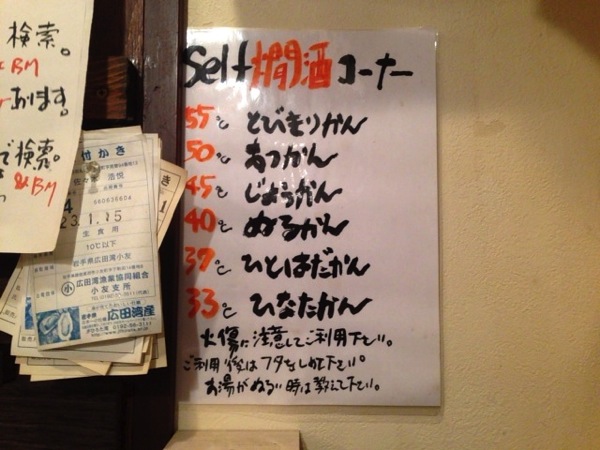 検索。
BM
おります。
で検索。
&BM
Self 燗酒 コーナー
55℃ とびきりかん
50℃ あつかん
45℃ じょうかん
40℃ ぬるかん
37℃ ひとはだかん
33℃ ひなたかん
火傷に注意してご利用下さい。
ご利用後はフタをしめて下さい。
お湯がぬるい時は教えて下さい。
付かき
浩悦
23.1.15
生食用
10℃以下
岩手県広田湾小友
広田湾漁業協同組合
小友支所
広田湾産